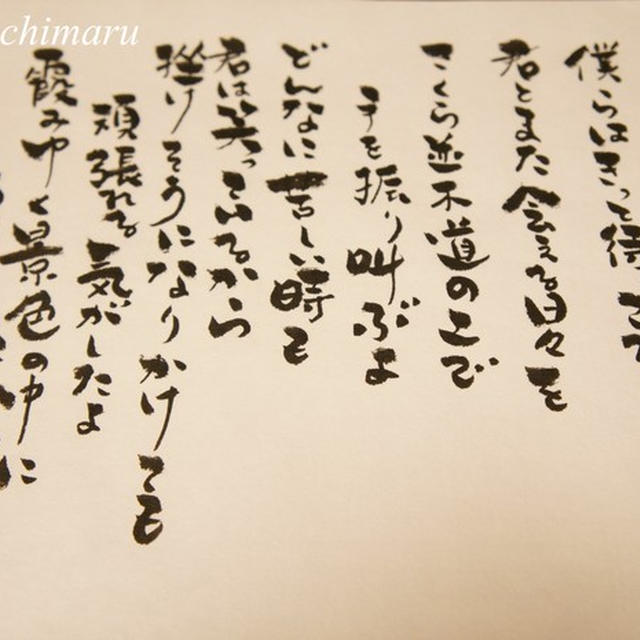 chimaru
僕らはきっと待って
君とまた会える日々を
さくら並木道の上で
手を振り叫ぶよ
どんなに苦しい時も
君は笑っているから
挫けそうになりかけても
頑張れる気がしたよ
霞みゆく景色の中に